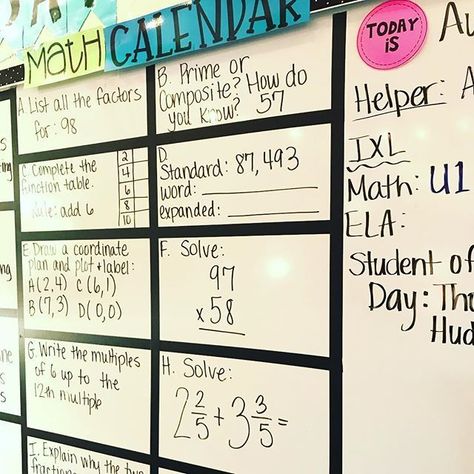 Math CALENDAR
A List all the factors
for: 98
B. Prime or
Composite? How do
you know? 57
C. Complete the
function table.
Rule: add 6
2
4
6
8
10
D.
Standard: 87,493
word:
expanded:
E. Draw a coordinate
plan and plot + label:
A(2,4) C(6,1)
B(7,3) D(0,0)
F. Solve:
97
x58
G. Write the multiples
of 6 up to the
12th multiple
H. Solve:
2 2/5 + 3 3/5 =
I. Explain why the two
TODAY
is
Helper:
IXL
Math: U1
ELA:
Student of
Day: